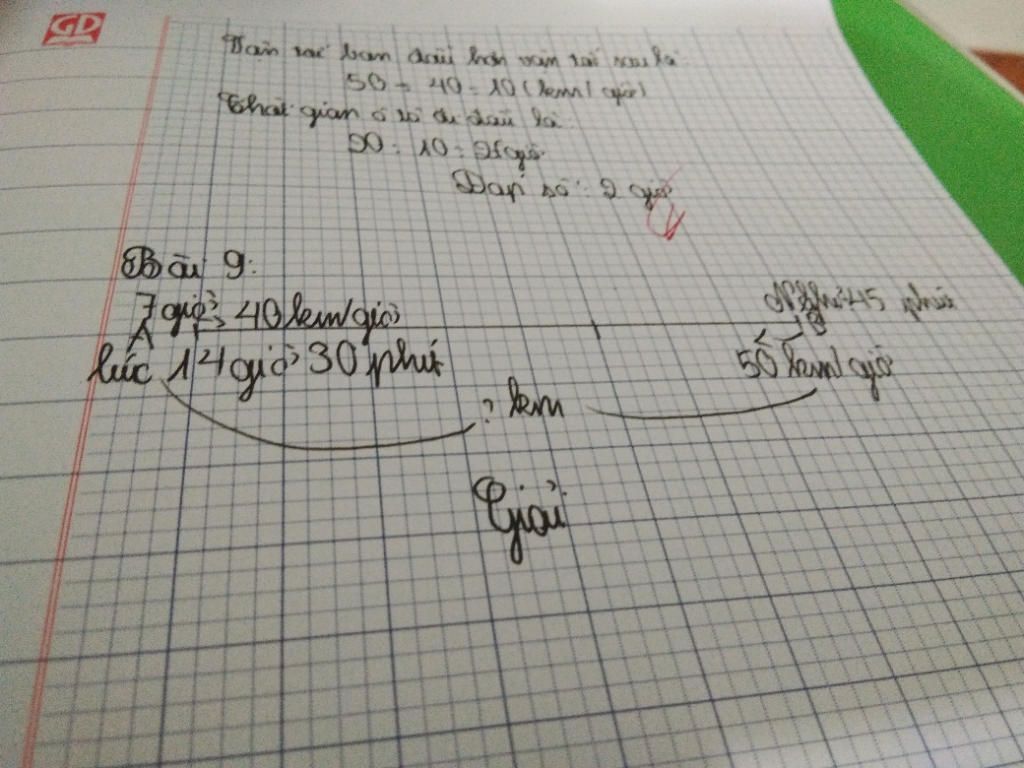 GD
Vận tốc ban đầu hơn vận tốc sau là
50 - 40 = 10 (km/giờ)
Thời gian ô tô đi đầu là
20 : 10 = 2 giờ
Đáp số : 2 giờ
Bài 9:
7 giờ 40 km/giờ
Nghỉ 45 phút
A
B
lúc 14 giờ 30 phút
50 km/giờ
? km
Giải